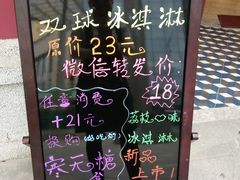 双球冰淇淋
原价23元
微信转发价
18
任意消费
+21元
换购
寒天糖
荔枝口味
冰淇淋
新品
上市!